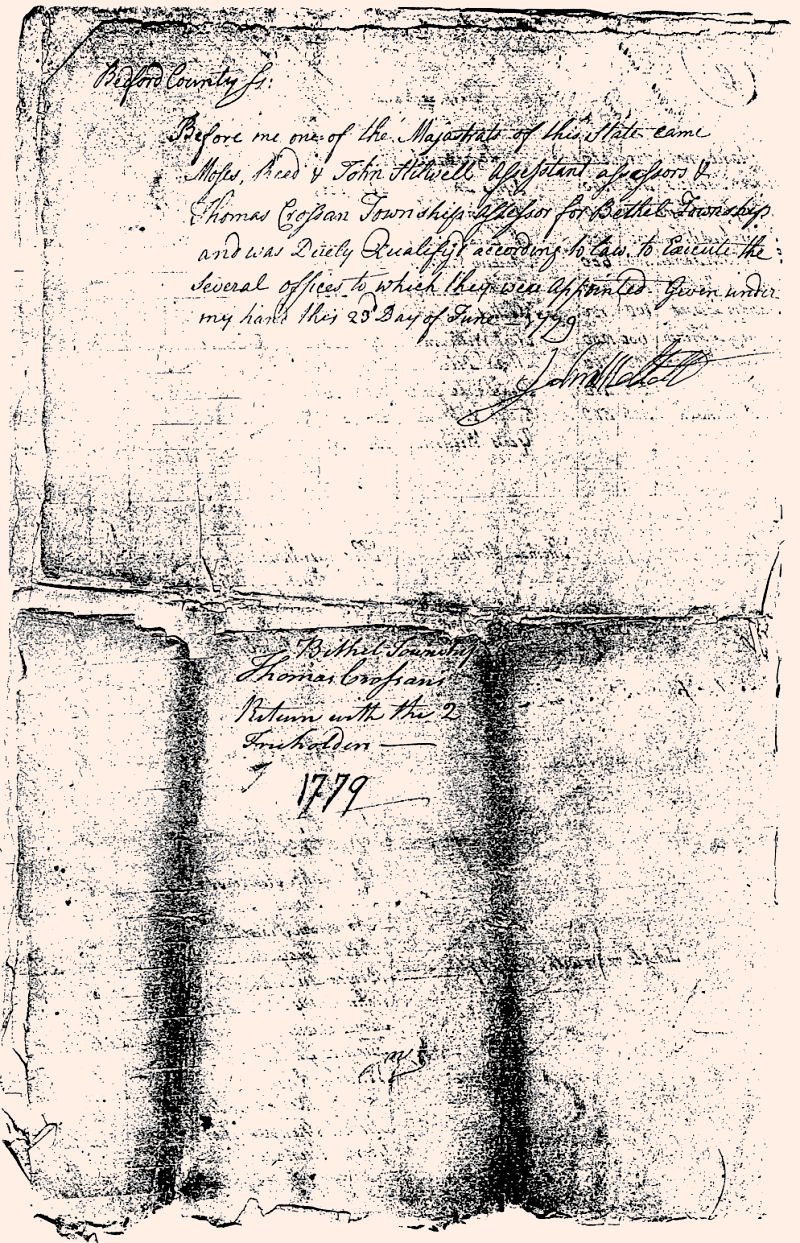 Bedford County Ss:
Before me one of the Majastrats of this State came
Moses, Reed & John Stilwell Assesstant assessors &
Thomas Crossan Townships Assessor for Bethel Township
and was Duely Qualifyd according to Law to Execute the
several offices to which they were Appointed Given under
my hand this 23d Day of June 1779
Bethel Township
Thomas Crossans
Return with the 2
Freholders
1779